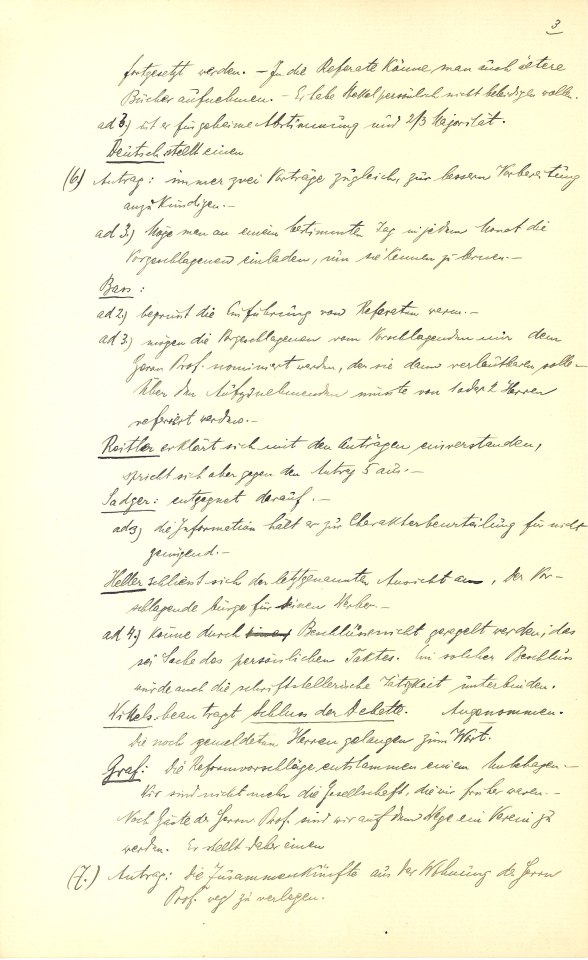 3
fortgesetzt werden. – In die Referate könne man auch ältere
Bücher aufnehmen. – Er habe Stekel persönlich nicht beleidigen wollen.
ad 3) ist er für geheime Abstimmung und 2/3 Majorität.
Deutsch stellt einen
(6) Antrag: immer zwei Vorträge zugleich, zur bessern Vorbereitung
anzukündigen. –
ad 3.) Möge man an einem bestimmten Tag in jedem Monat die
Vorgeschlagenen einladen, um sie kennen zu lernen. –
Bass:
ad 2.) begrüsst die Einführung von Referaten warm. –
ad 3.) mögen die Vorgeschlagenen vom Vorschlagenden nur dem
Herrn Prof. nominiert werden, der sie dann verlautbaren solle.
Über den Aufzunehmenden müsste von 1 oder 2 Herren
referiert werden. –
Reitler erklärt sich mit den Anträgen einverstanden,
spricht sich aber gegen den Antrag 5 aus. –
Sadger: entgegnet darauf. –
ad 3) die Information hält er zur Charakterbeurteilung für nicht
genügend. –
Heller schliesst sich der letztgenannten Ansicht an, der Vor-
schlagende bürge für seinen Werber. –
ad 4.) könne durch Beschlüsse nicht geregelt werden; das
sei Sache des persönlichen Taktes. Ein solcher Beschluss
würde auch die schriftstellerische Tätigkeit unterbinden.
Wittels beantragt Schluss der Debatte. Angenommen.
Die noch gemeldeten Herren gelangen zum Wort.
Graf: Die Reformvorschläge entstammen einem Unbehagen. –
Wir sind nicht mehr die Gesellschaft, die wir früher waren. –
Noch Gäste des Herrn Prof. sind wir auf dem Wege ein Verein zu
werden. Er stellt daher einen
(7.) Antrag: die Zusammenkünfte aus der Wohnung des Herrn
Prof. weg zu verlegen.